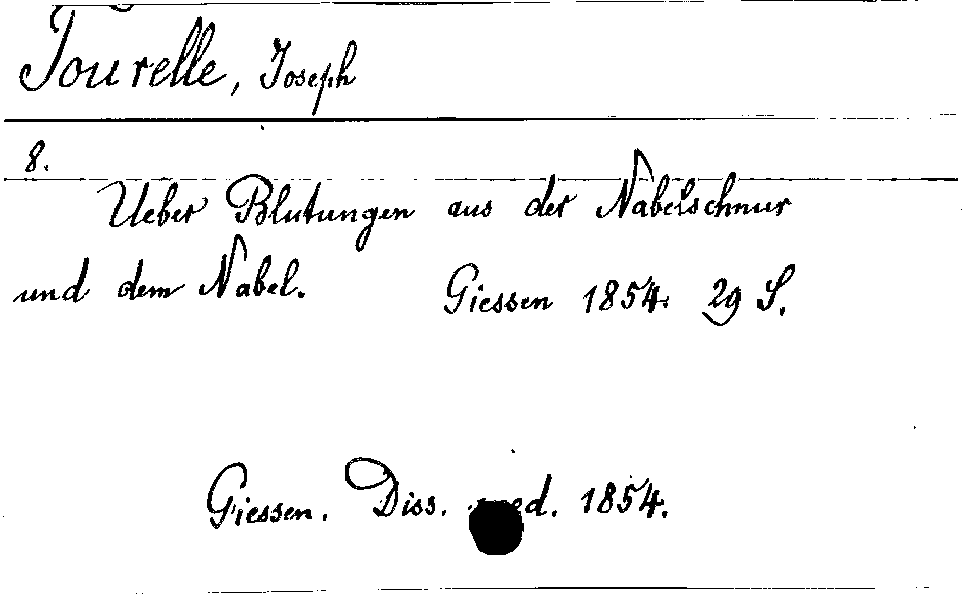 Tourelle, Joseph
8.
Ueber Blutungen aus der Nabelschnur
und dem Nabel. Giessen 1854. 29 S.
Giessen. Diss. med. 1854.